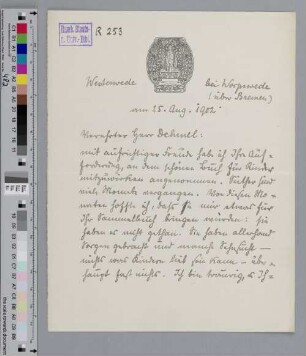 R 253
Westerwede bei Worpswede
(über Bremen)
am 25. Aug. 1902
Verehrter Herr Dehmel:
mit aufrichtiger Freude hab ich Ihre Auf-
forderung, an dem schönen Buch für Kinder
mitzuwirken angenommen. Seither sind
viele Monate vergangen. Von diesen Mo-
naten hoffte ich, daß sie mir etwas für
Ihr Sammelbuch bringen würden: sie
haben es nicht gethan. Sie haben allerhand
Sorgen gebracht und manche Sehnsucht —
nichts was Kindern lieb sein kann — über-
haupt fast nichts. Ich bin traurig, Ih-